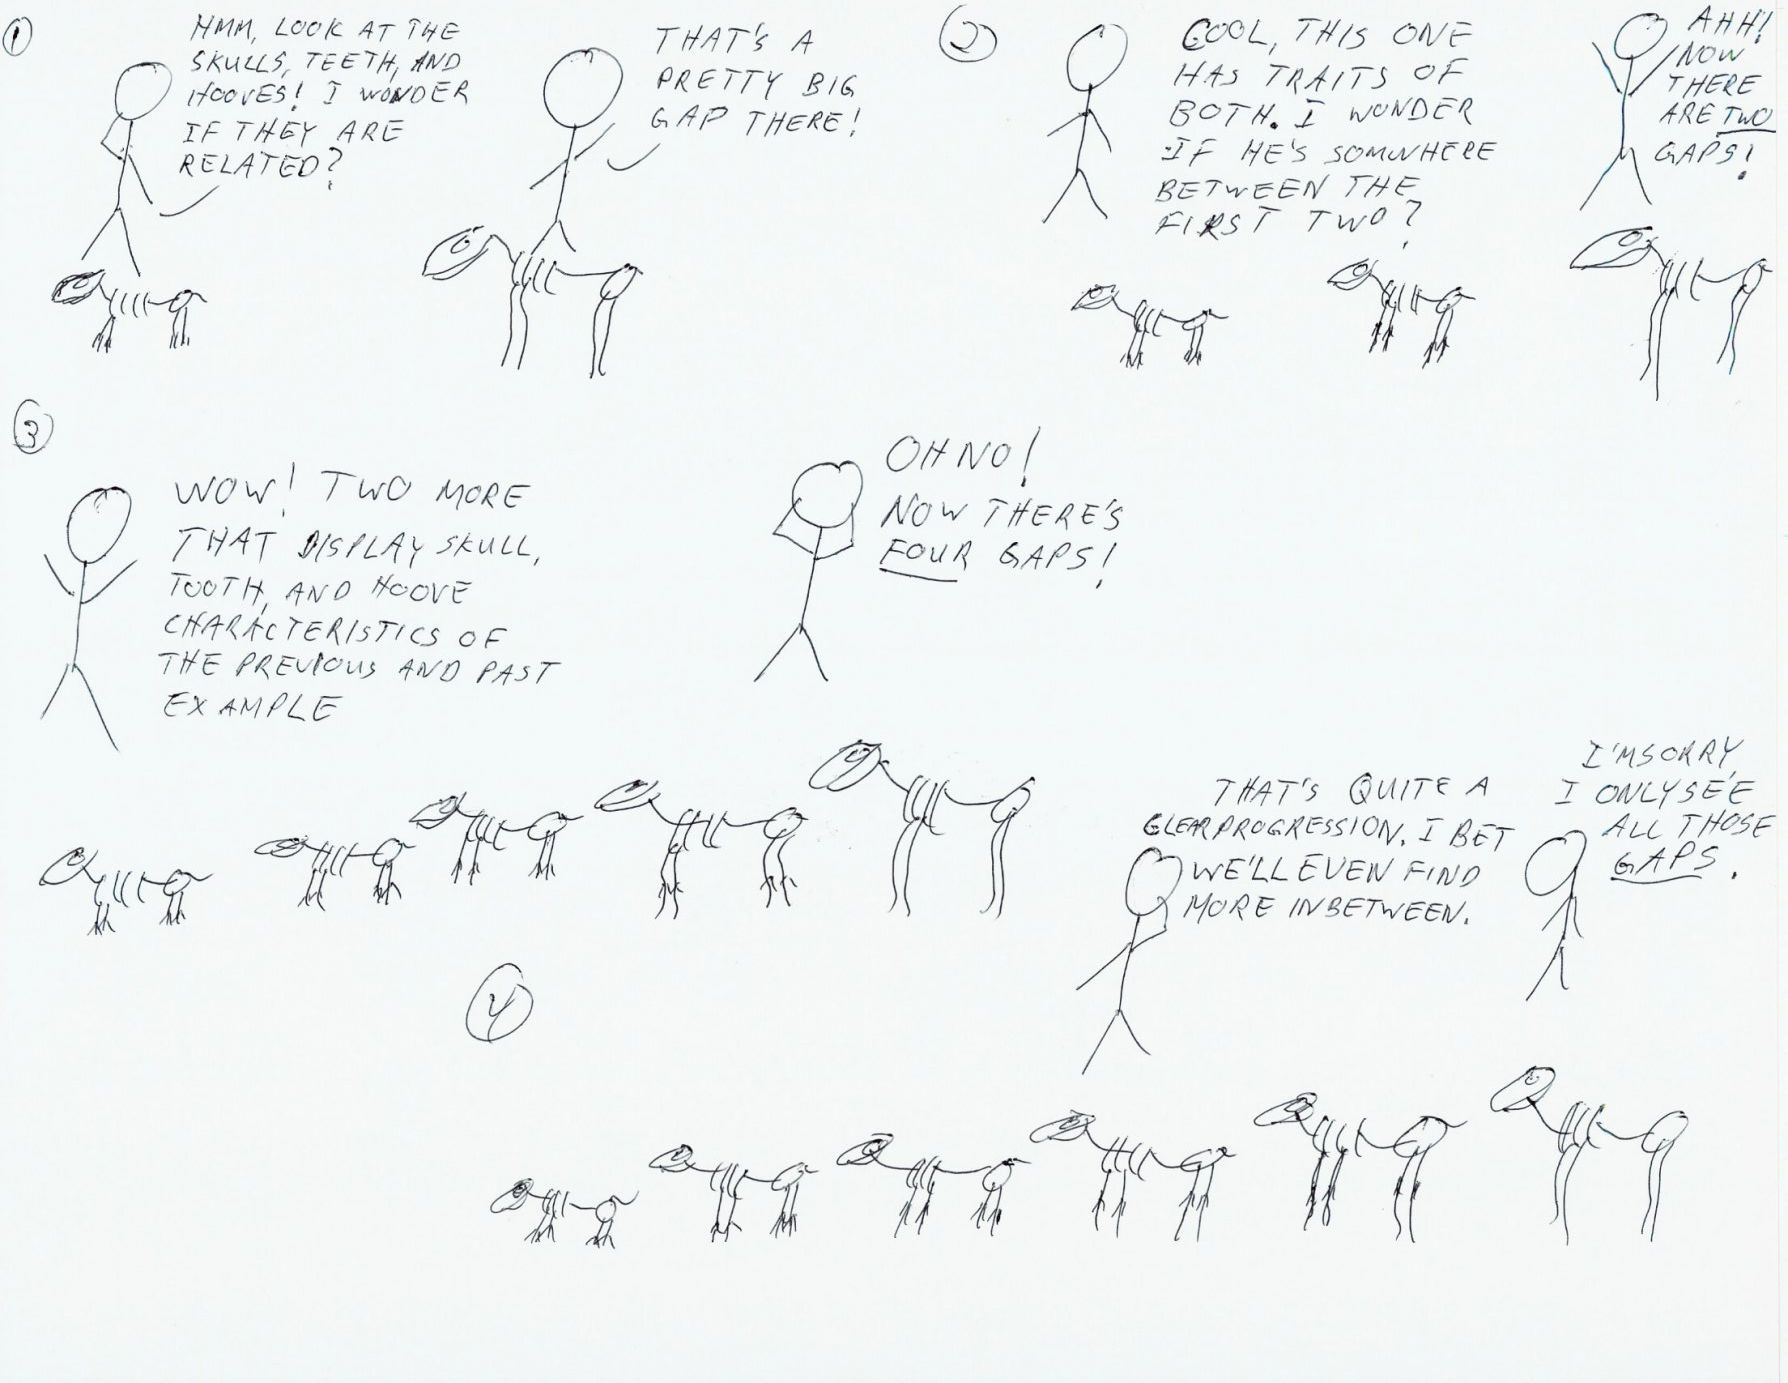 1
HMM, LOOK AT THE
SKULLS, TEETH, AND
HOOVES! I WONDER
IF THEY ARE
RELATED?
THAT'S A
PRETTY BIG
GAP THERE!
2
COOL, THIS ONE
HAS TRAITS OF
BOTH. I WONDER
IF HE'S SOMWHERE
BETWEEN THE
FIRST TWO?
AHH!
NOW
THERE
ARE TWO
GAPS!
3
WOW! TWO MORE
THAT DISPLAY SKULL,
TOOTH, AND HOOVE
CHARACTERISTICS OF
THE PREVIOUS AND PAST
EXAMPLE
OH NO!
NOW THERE'S
FOUR GAPS!
4
THAT'S QUITE A
CLEAR PROGRESSION. I BET
WE'LL EVEN FIND
MORE INBETWEEN.
I'M SORRY,
I ONLY SEE
ALL THOSE
GAPS.